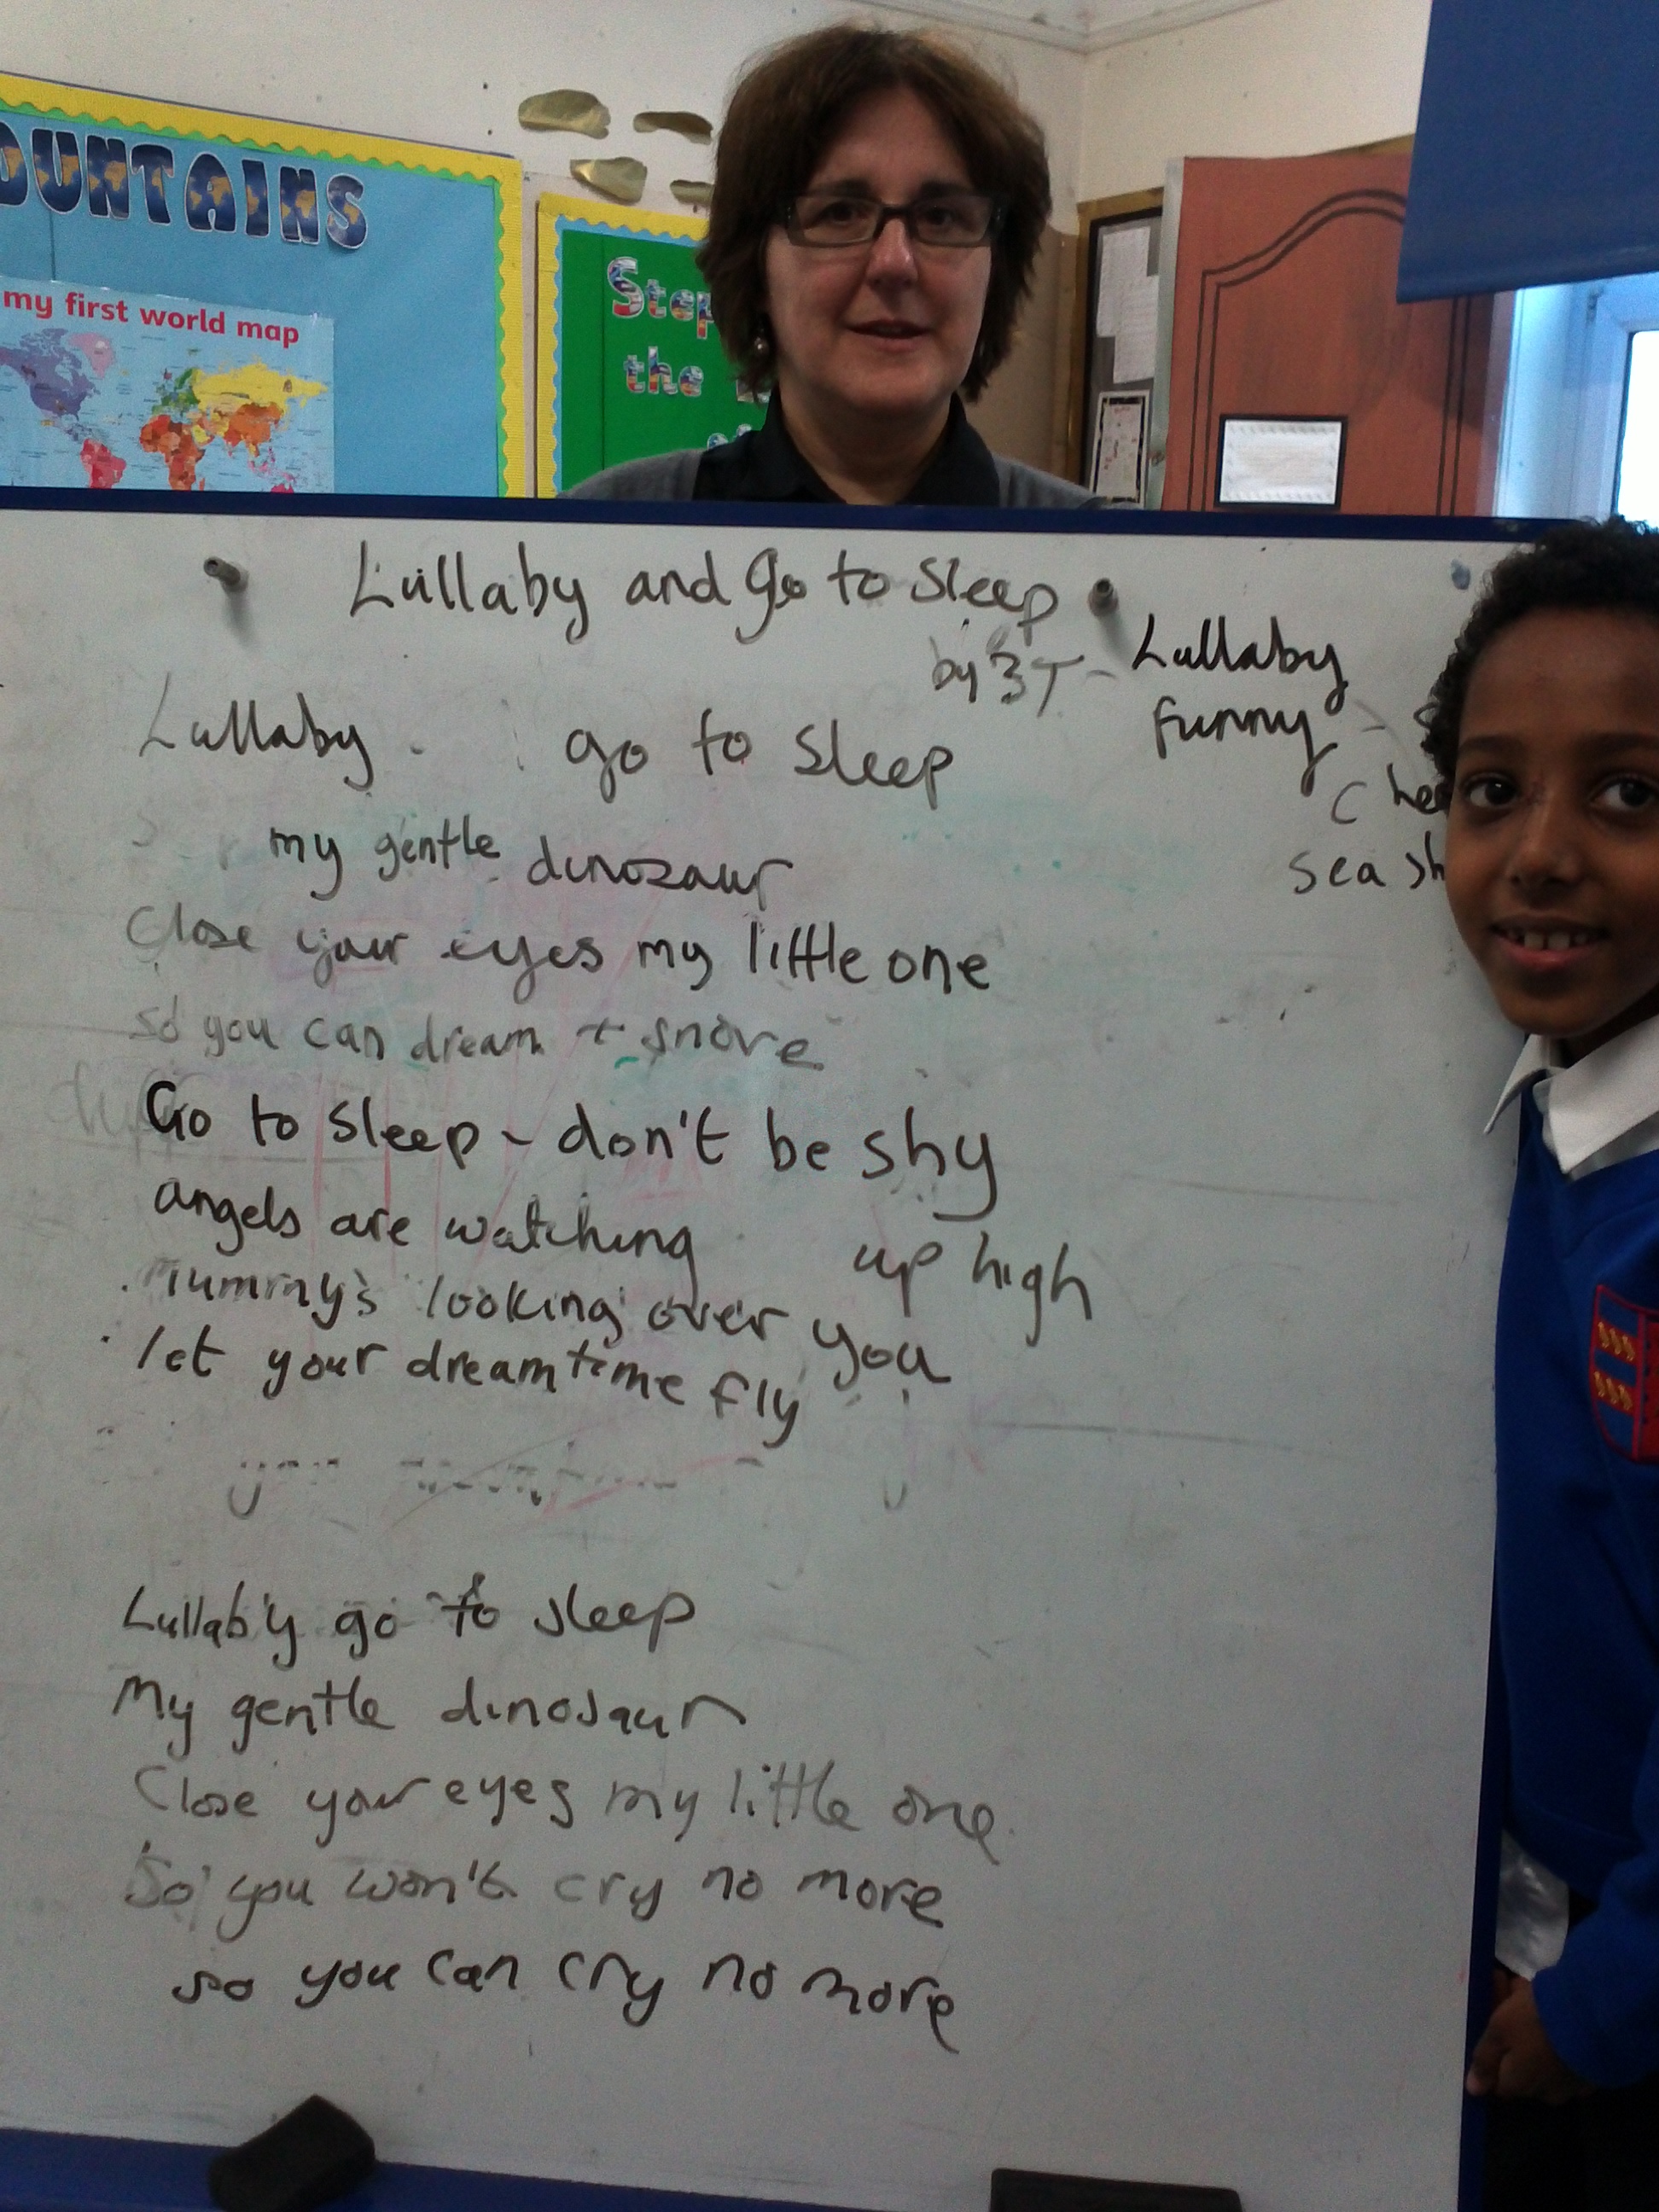 OUNTAINS
my first world map
Step
the
Lullaby and go to sleep
by 3T - Lullaby
funny -
Lullaby go to sleep
my gentle dinosaur
Close your eyes my little one
so you can dream + snore
Go to sleep - don't be shy
angels are watching up high
looking over you
let your dreamtime fly
Lullaby go to sleep
My gentle dinosaur
Close your eyes my little one
So you won't cry no more
so you can cry no more